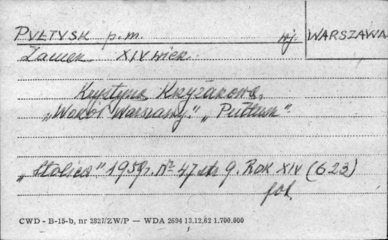 PUŁTUSK p.m. wj. WARSZAWA
Zamek XIV wiek.
Krystyna Krzyżakowa,
„Wokół Warszawy." „Pułtusk".
„Stolica" 1959r. Nr 47 str 9. Rok XIV (623)
fot.
CWD - B-15-b, nr 2827/ZW/P — WDA 2694 13.12.52 1.700.000